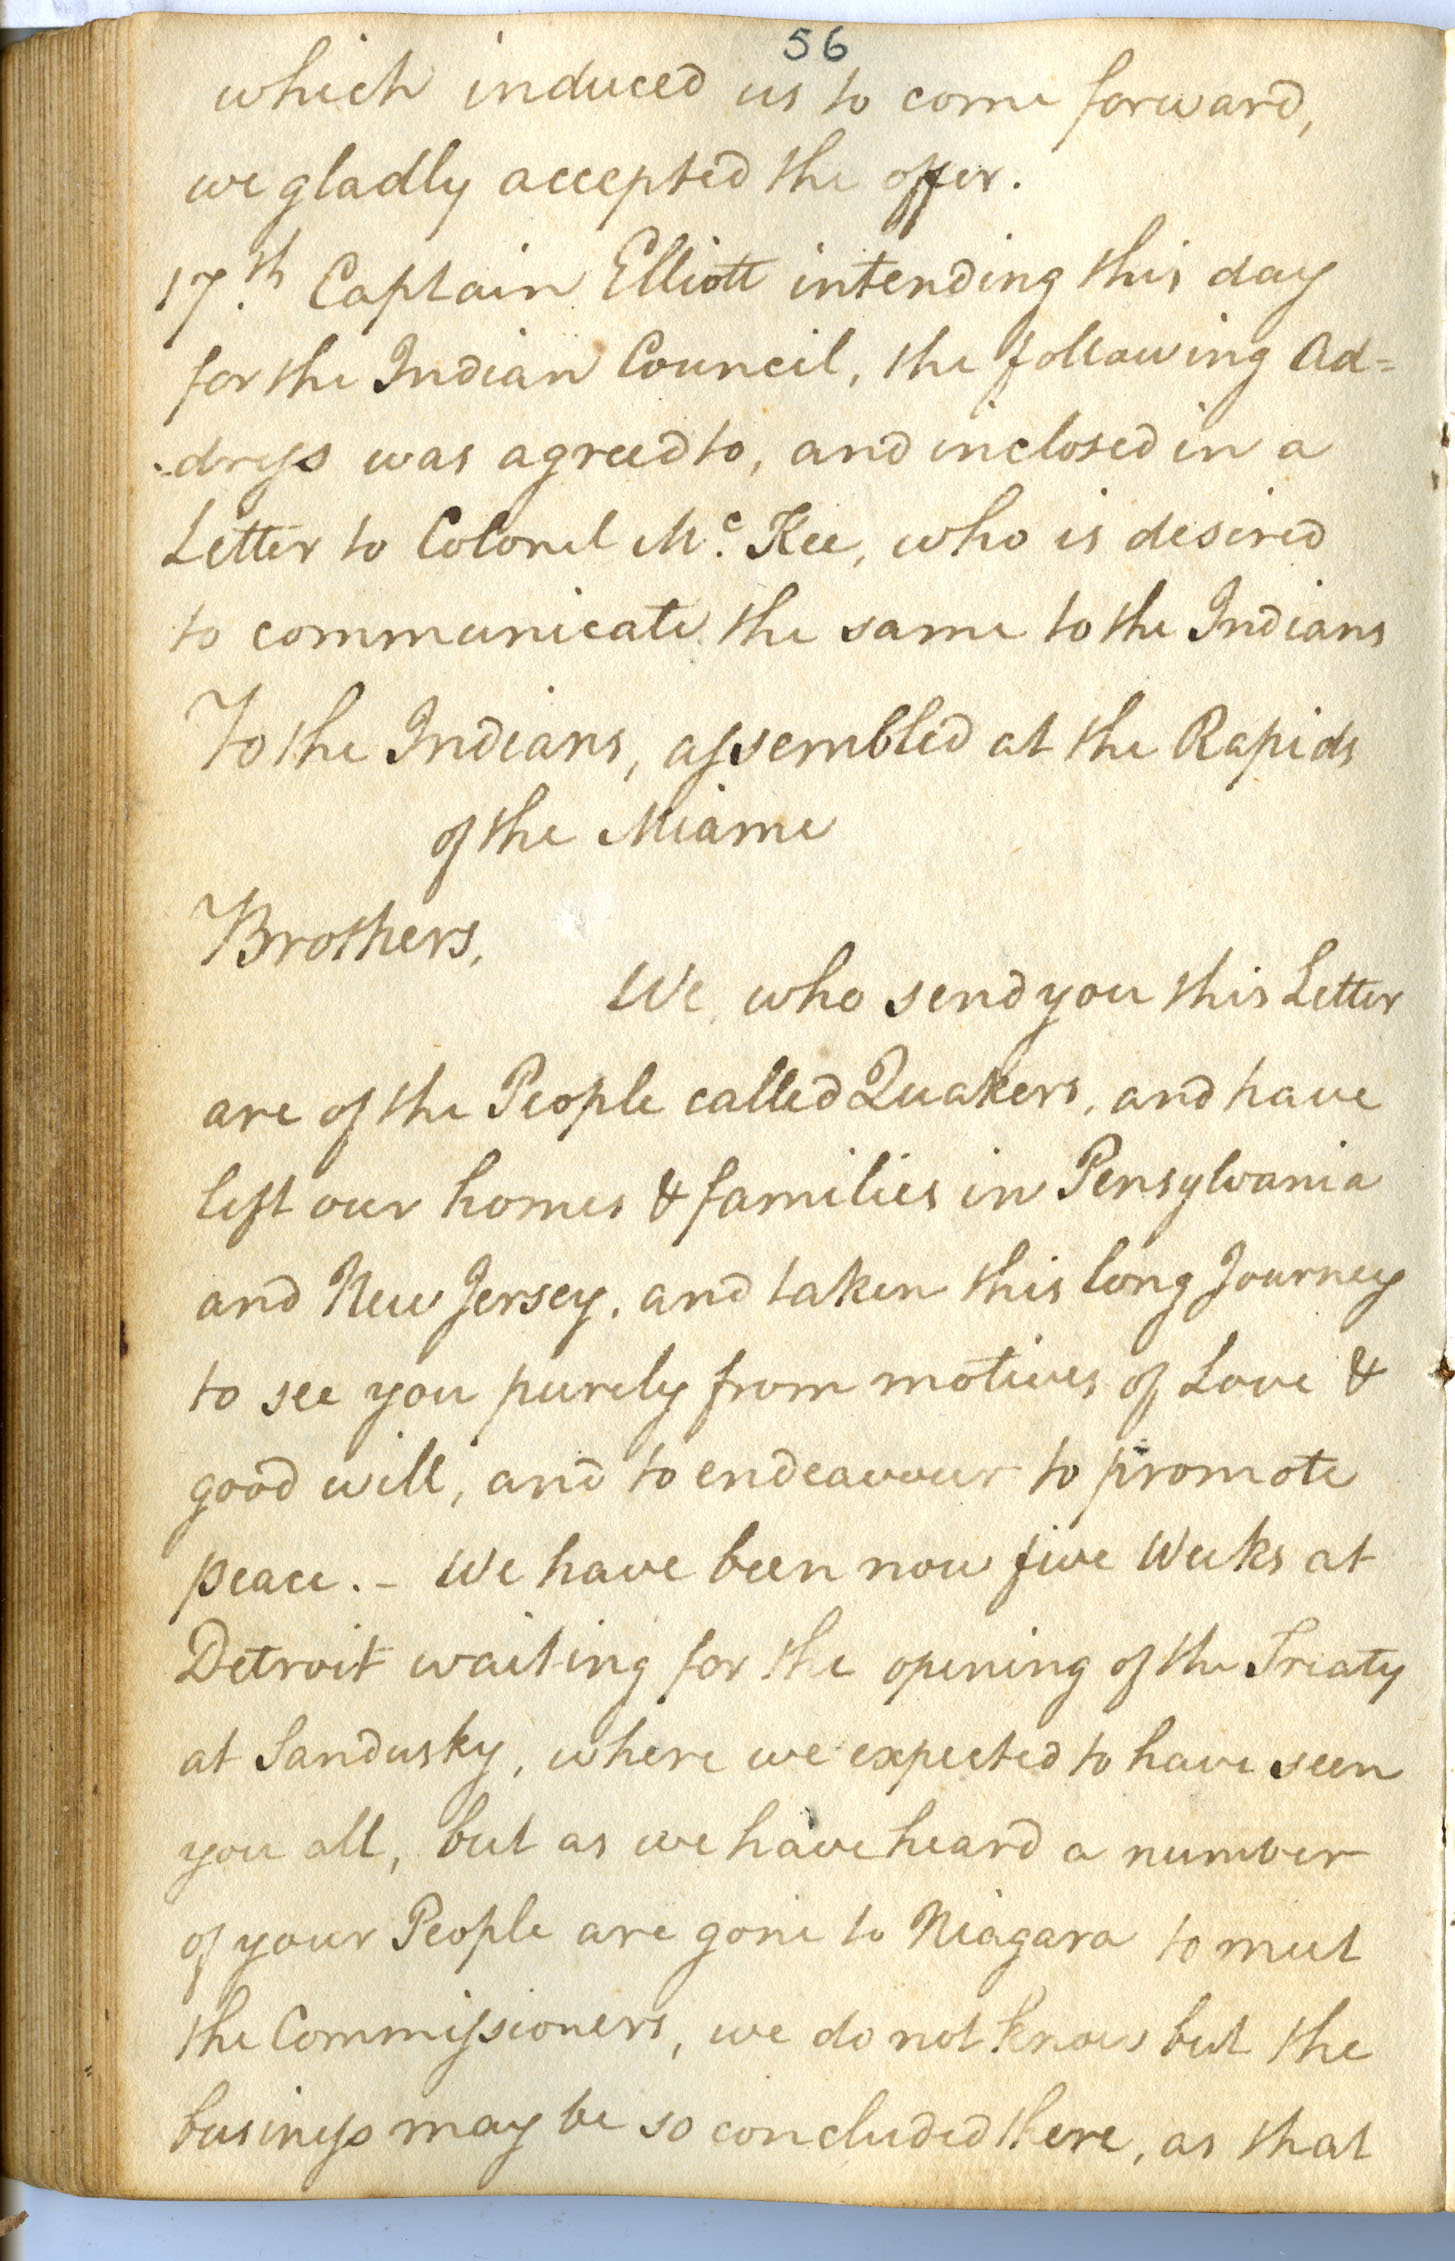 56
which induced us to come forward,
we gladly accepted the offer.
17.th Captain Elliott intending this day
for the Indian Council, the following Ad=
-dress was agreed to, and inclosed in a
Letter to Colonel Mc. Kee, who is desired
to communicate the same to the Indians
To the Indians, assembled at the Rapids
of the Miame
Brothers,
We who send you this Letter
are of the People called Quakers, and have
left our homes & families in Pensylvania
and New Jersey, and taken this long Journey
to see you purely from motives of Love &
good will, and to endeavour to promote
peace. - We have been now five Weeks at
Detroit waiting for the opening of the Treaty
at Sandusky, where we expected to have seen
you all, but as we have heard a number
of your People are gone to Niagara to meet
the Commissioners, we do not know but the
business may be so concluded there, as that